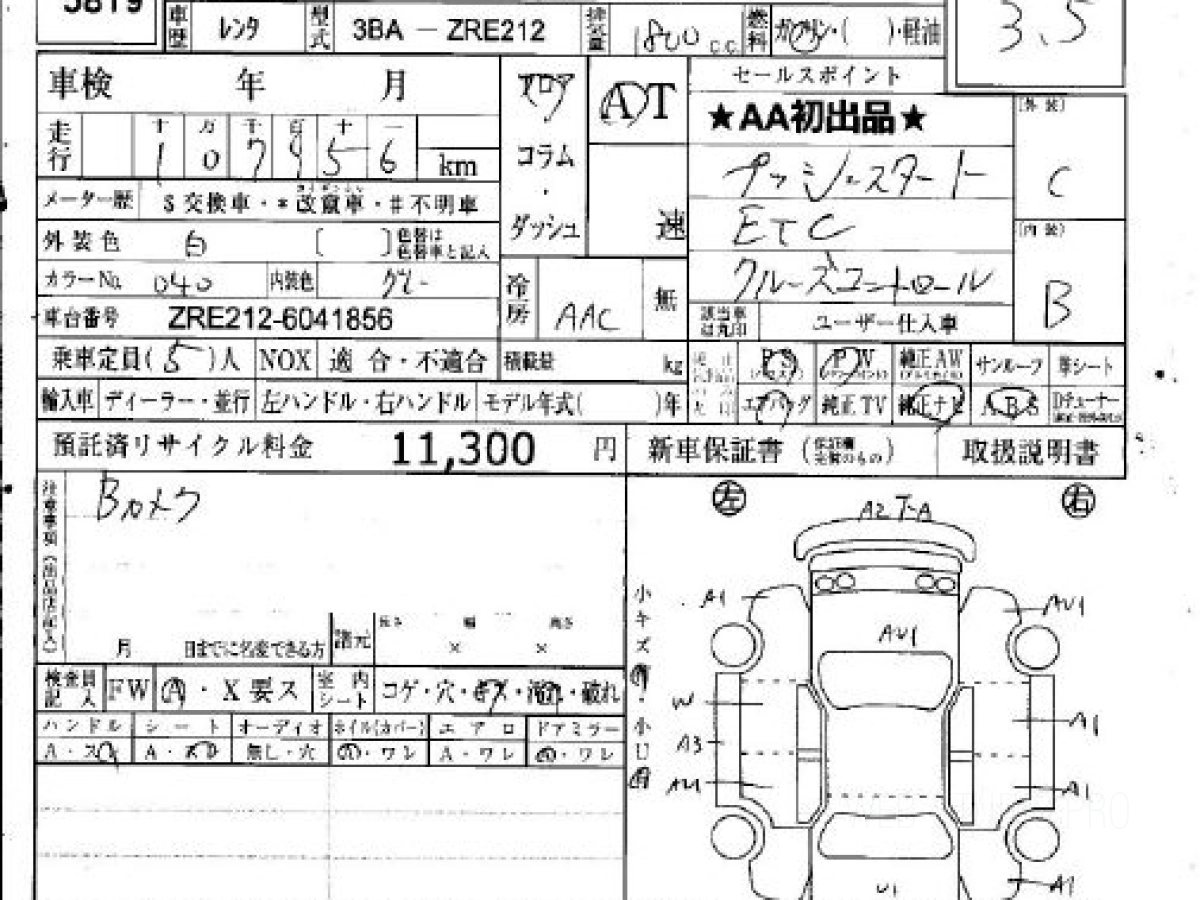 5819
車歴 レンタ 型式 3BA － ZRE212 排気量 1800 c.c. 燃料 ガソリン・( )・軽油
3.5
車検 年 月
フロア AT セールスポイント
★AA初出品★
[外装]
走行 十 万 千 百 十 一
1 0 7 9 5 6 km
コラム
・
プッシュスタート
C
メーター歴 S 交換車・＊改竄車・♯不明車
ダッシュ 速
ETC
[内装]
外装色 白 [ ] 色替は 色替車と記入
クルーズコントロール
カラーNo. 040 内装色 グレー
冷房 AAC 無
B
車台番号 ZRE212-6041856
該当車は丸印 ユーザー仕入車
乗車定員( 5 )人 NOX 適合・不適合 積載量 kg
PS PW 純正AW サンルーフ 革シート
輸入車 ディーラー・並行 左ハンドル・右ハンドル モデル年式( )年
エアバッグ 純正TV 純正ナビ ABS Dチューナー
預託済リサイクル料金 11,300 円 新車保証書 (保証欄完備のもの) 取扱説明書
注意事項(出品店記入) Bカメラ
左 右
A2 T-A
小キズ有・小U有
A1 AU1
AU1
月 日までに名変できる方 諸元 長さ 幅 高さ
× ×
検査員記入 FW A・X要ス 室内シート コゲ・穴・キズ・濡れ・破れ
W
ハンドル シート オーディオ ホイル(カバー) エアロ ドアミラー
A1
A・スレ A・スレ 無し・穴 A・ワレ A・ワレ A・ワレ
A3
A1
U1
A1